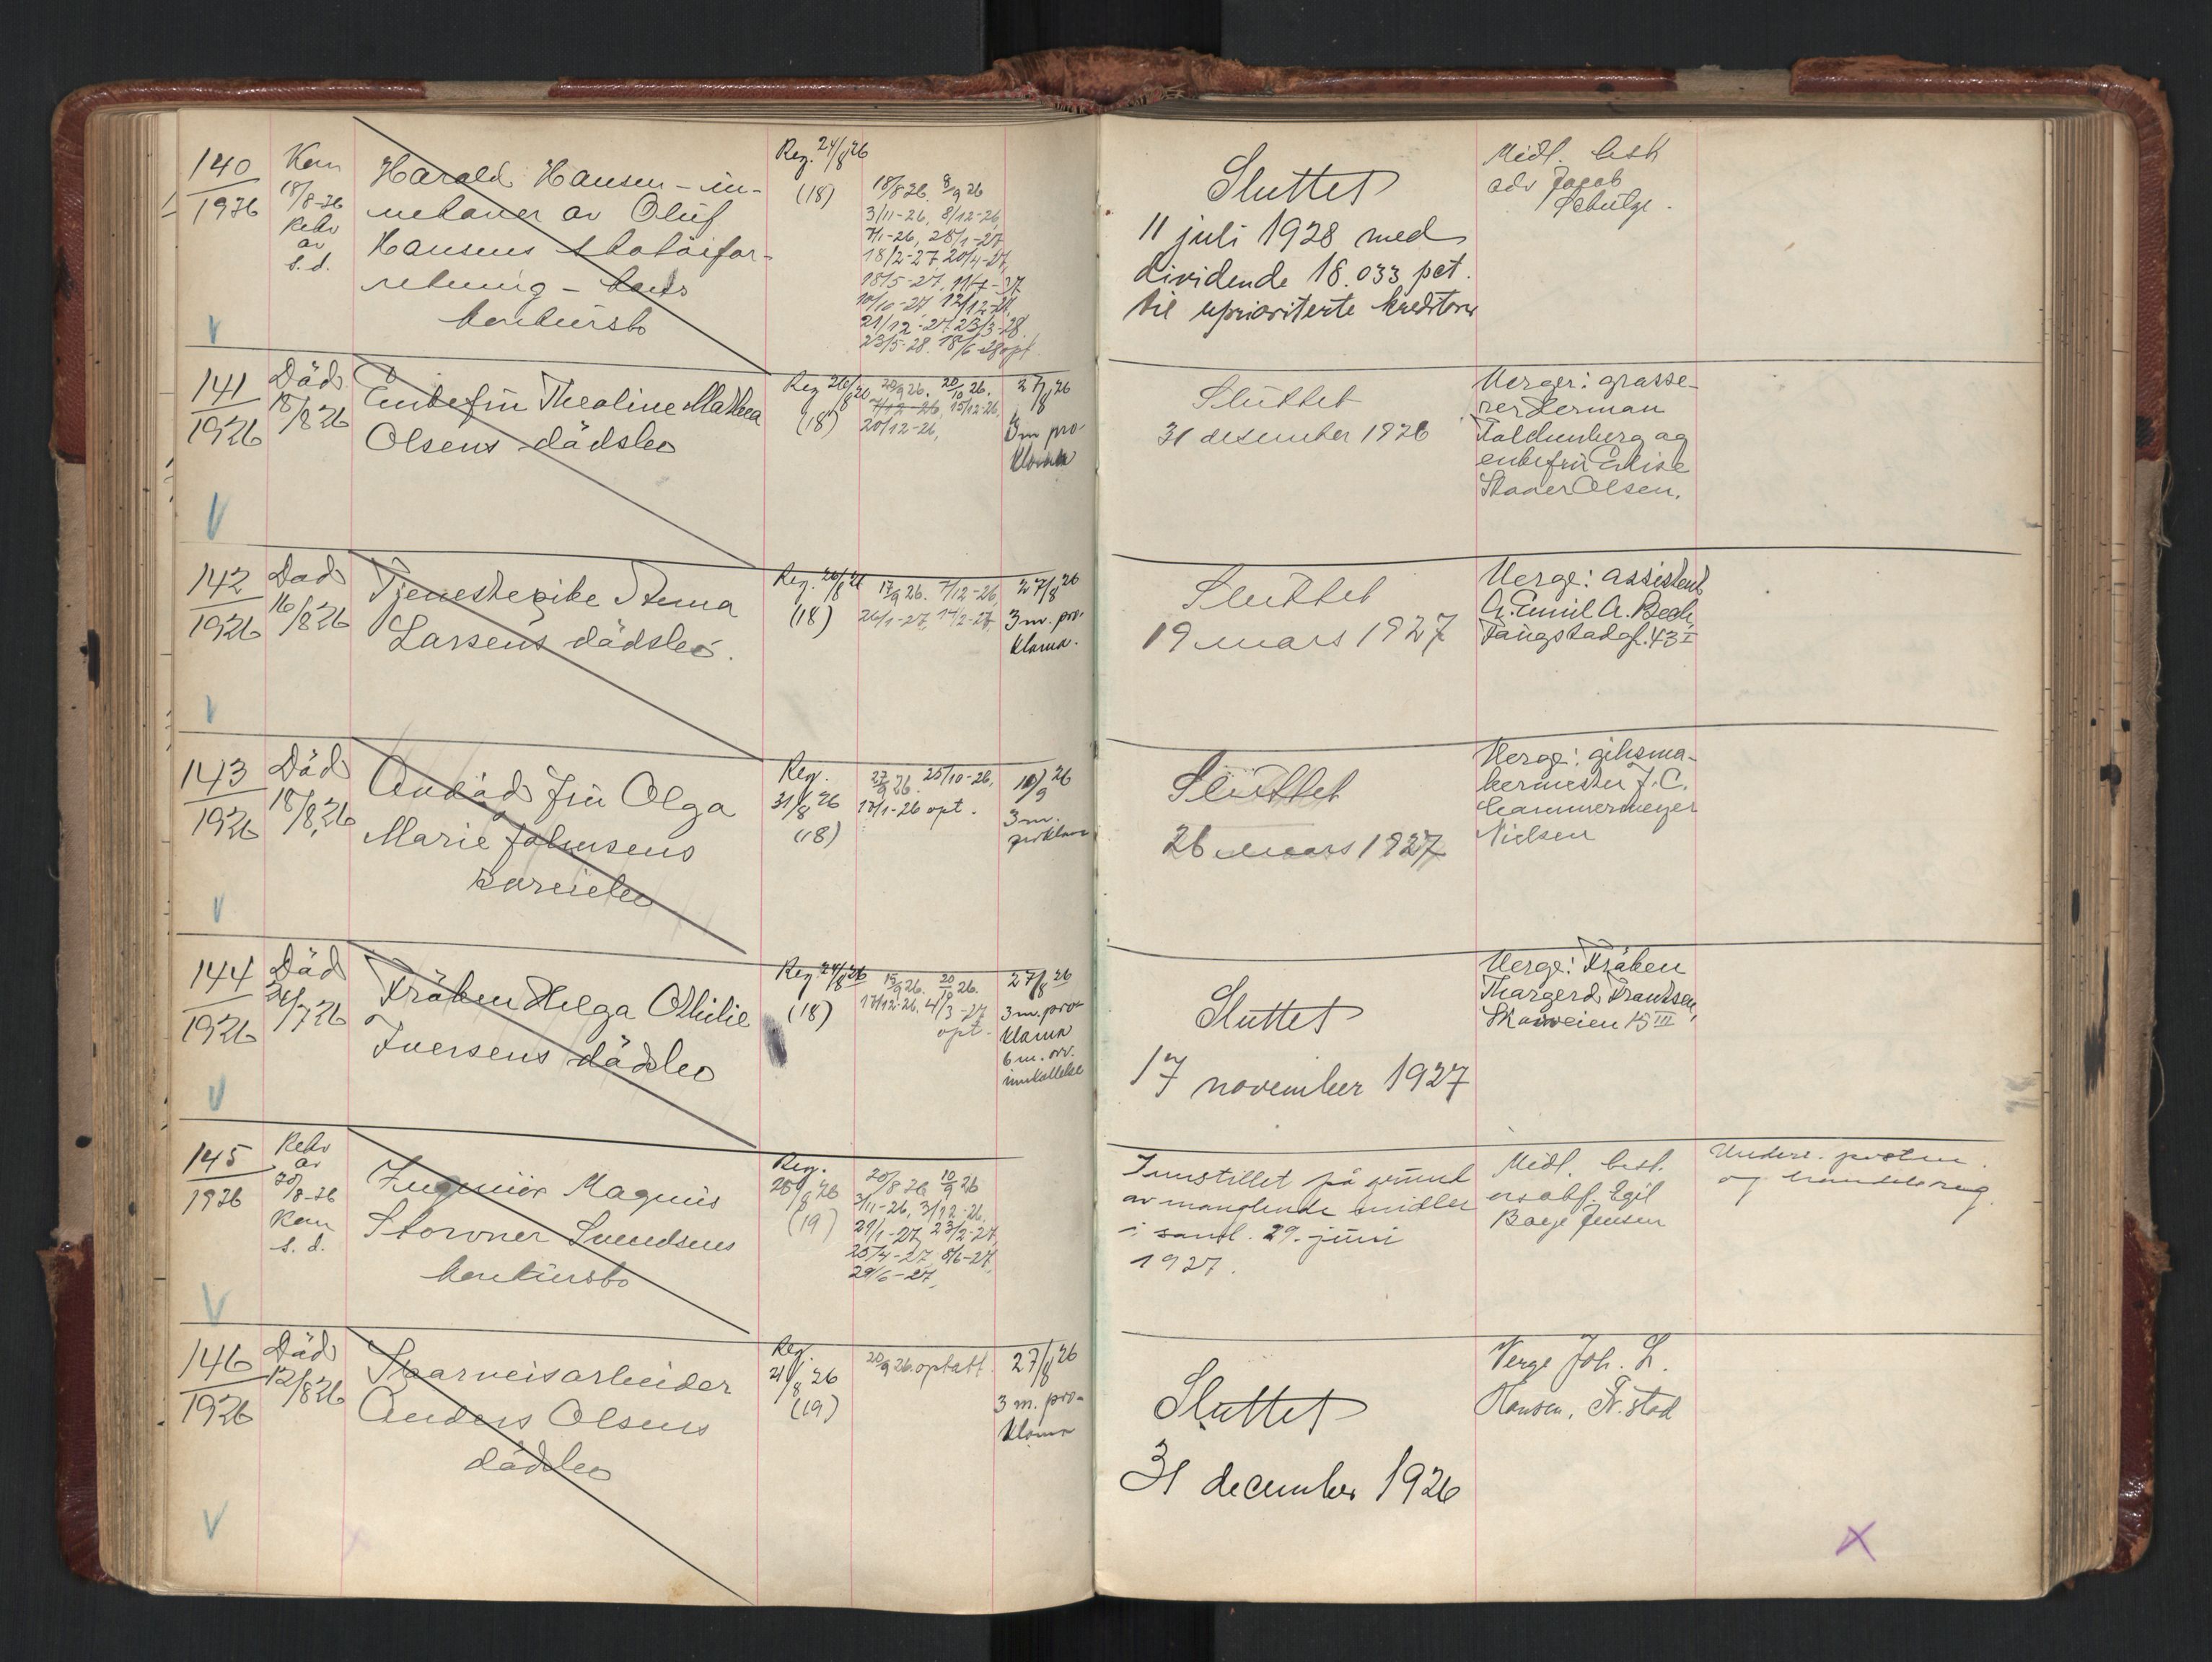 140
1926
Kon
18/8-26
Rekv
av
s. d.
Harald Hansen - in-
nehaver av Oluf
Hansens skotöifor-
retning - hans
konkursbo
Reg. 24/8 26
(18)
18/8 26. 9/9 26
3/11-26, 8/12-26,
7/1-26, 28/1-27
18/2-27, 20/4-27,
18/5-27, 11/7-27
10/10-27, 12/12-27,
21/12-27, 23/3-28.
23/5-28. 18/6-28 opt.
Sluttet
11 juli 1928 med
dividende 18.033 pct.
til uprioriterte kreditorer
Midl. best
adv Jacob
Schulze.
141
1926
Död
18/8 26
Enkefru Theoline Mathea
Olsens dödsbo
Reg 26/8 26
(18)
20/9 26. 20/10 26.
7/12-26, 15/12-26,
20/12-26,
27/8 26
3 m pro-
klama
Sluttet
31 desember 1926
Verger: grosse-
rer Herman
Foldenberg og
enkefru
Olsen.
142
1926
Död
16/8 26
Tjenestepike
Larsens dödsbo.
Reg. 26/8 26
(18)
17/9 26. 7/12-26,
26/1-27, 14/2-27,
27/8 26
3 m. pro-
klama.
Sluttet
19 mars 1927
Verge: assistent
A. Emil A. Bech,
43 I
143
1926
Död
18/8, 26
Avdöd fru Olga
Marie Johnsens
særeiebo
Reg.
31/8 26
(18)
27/9 26. 25/10-26,
17/1-26 opt.
10/9 26
3 m.
proklama
Sluttet
26 mars 1927
Verge: gibsma-
kermester J. C.
Cammermeyer
Nielsen
144
1926
Död
24/7 26
Fröken Helga Othilie
Iversens dödsbo
Reg. 24/8 26
(18)
15/9 26. 20/10 26.
17/12-26. 4/3-27
opt.
27/8 26
3 m. pro-
klama
6 m. arv.
innkallelse
Sluttet
17 november 1927
Verge: Fröken
Thorgerd Frantsen,
Skovveien 15 III
145
1926
Rekv
av
20/8-26
Kon
s. d.
Ingeniör Magnus
Stovner Svendsens
konkursbo
Reg.
(19)
20/8 26, 10/9 26
3/11-26, 3/12-26,
29/1-27, 23/2-27,
25/4-27, 8/6-27,
29/6-27,
Innstillet på grund
av manglende midler
i saml. 29. juni
1927.
Midl. best.
o.r.s.adf. Egil
Jensen
Underr. posten.
og handelsreg.
146
1926
Död
12/8 26
Sporveisarbeider
Anders Olsens
dödsbo
Reg.
21/8 26
(19)
20/9 26. optatt.
27/8 26
3 m. pro-
klama
Sluttet
31 december 1926
Verge Joh. L.
Hansen, Fr. stad